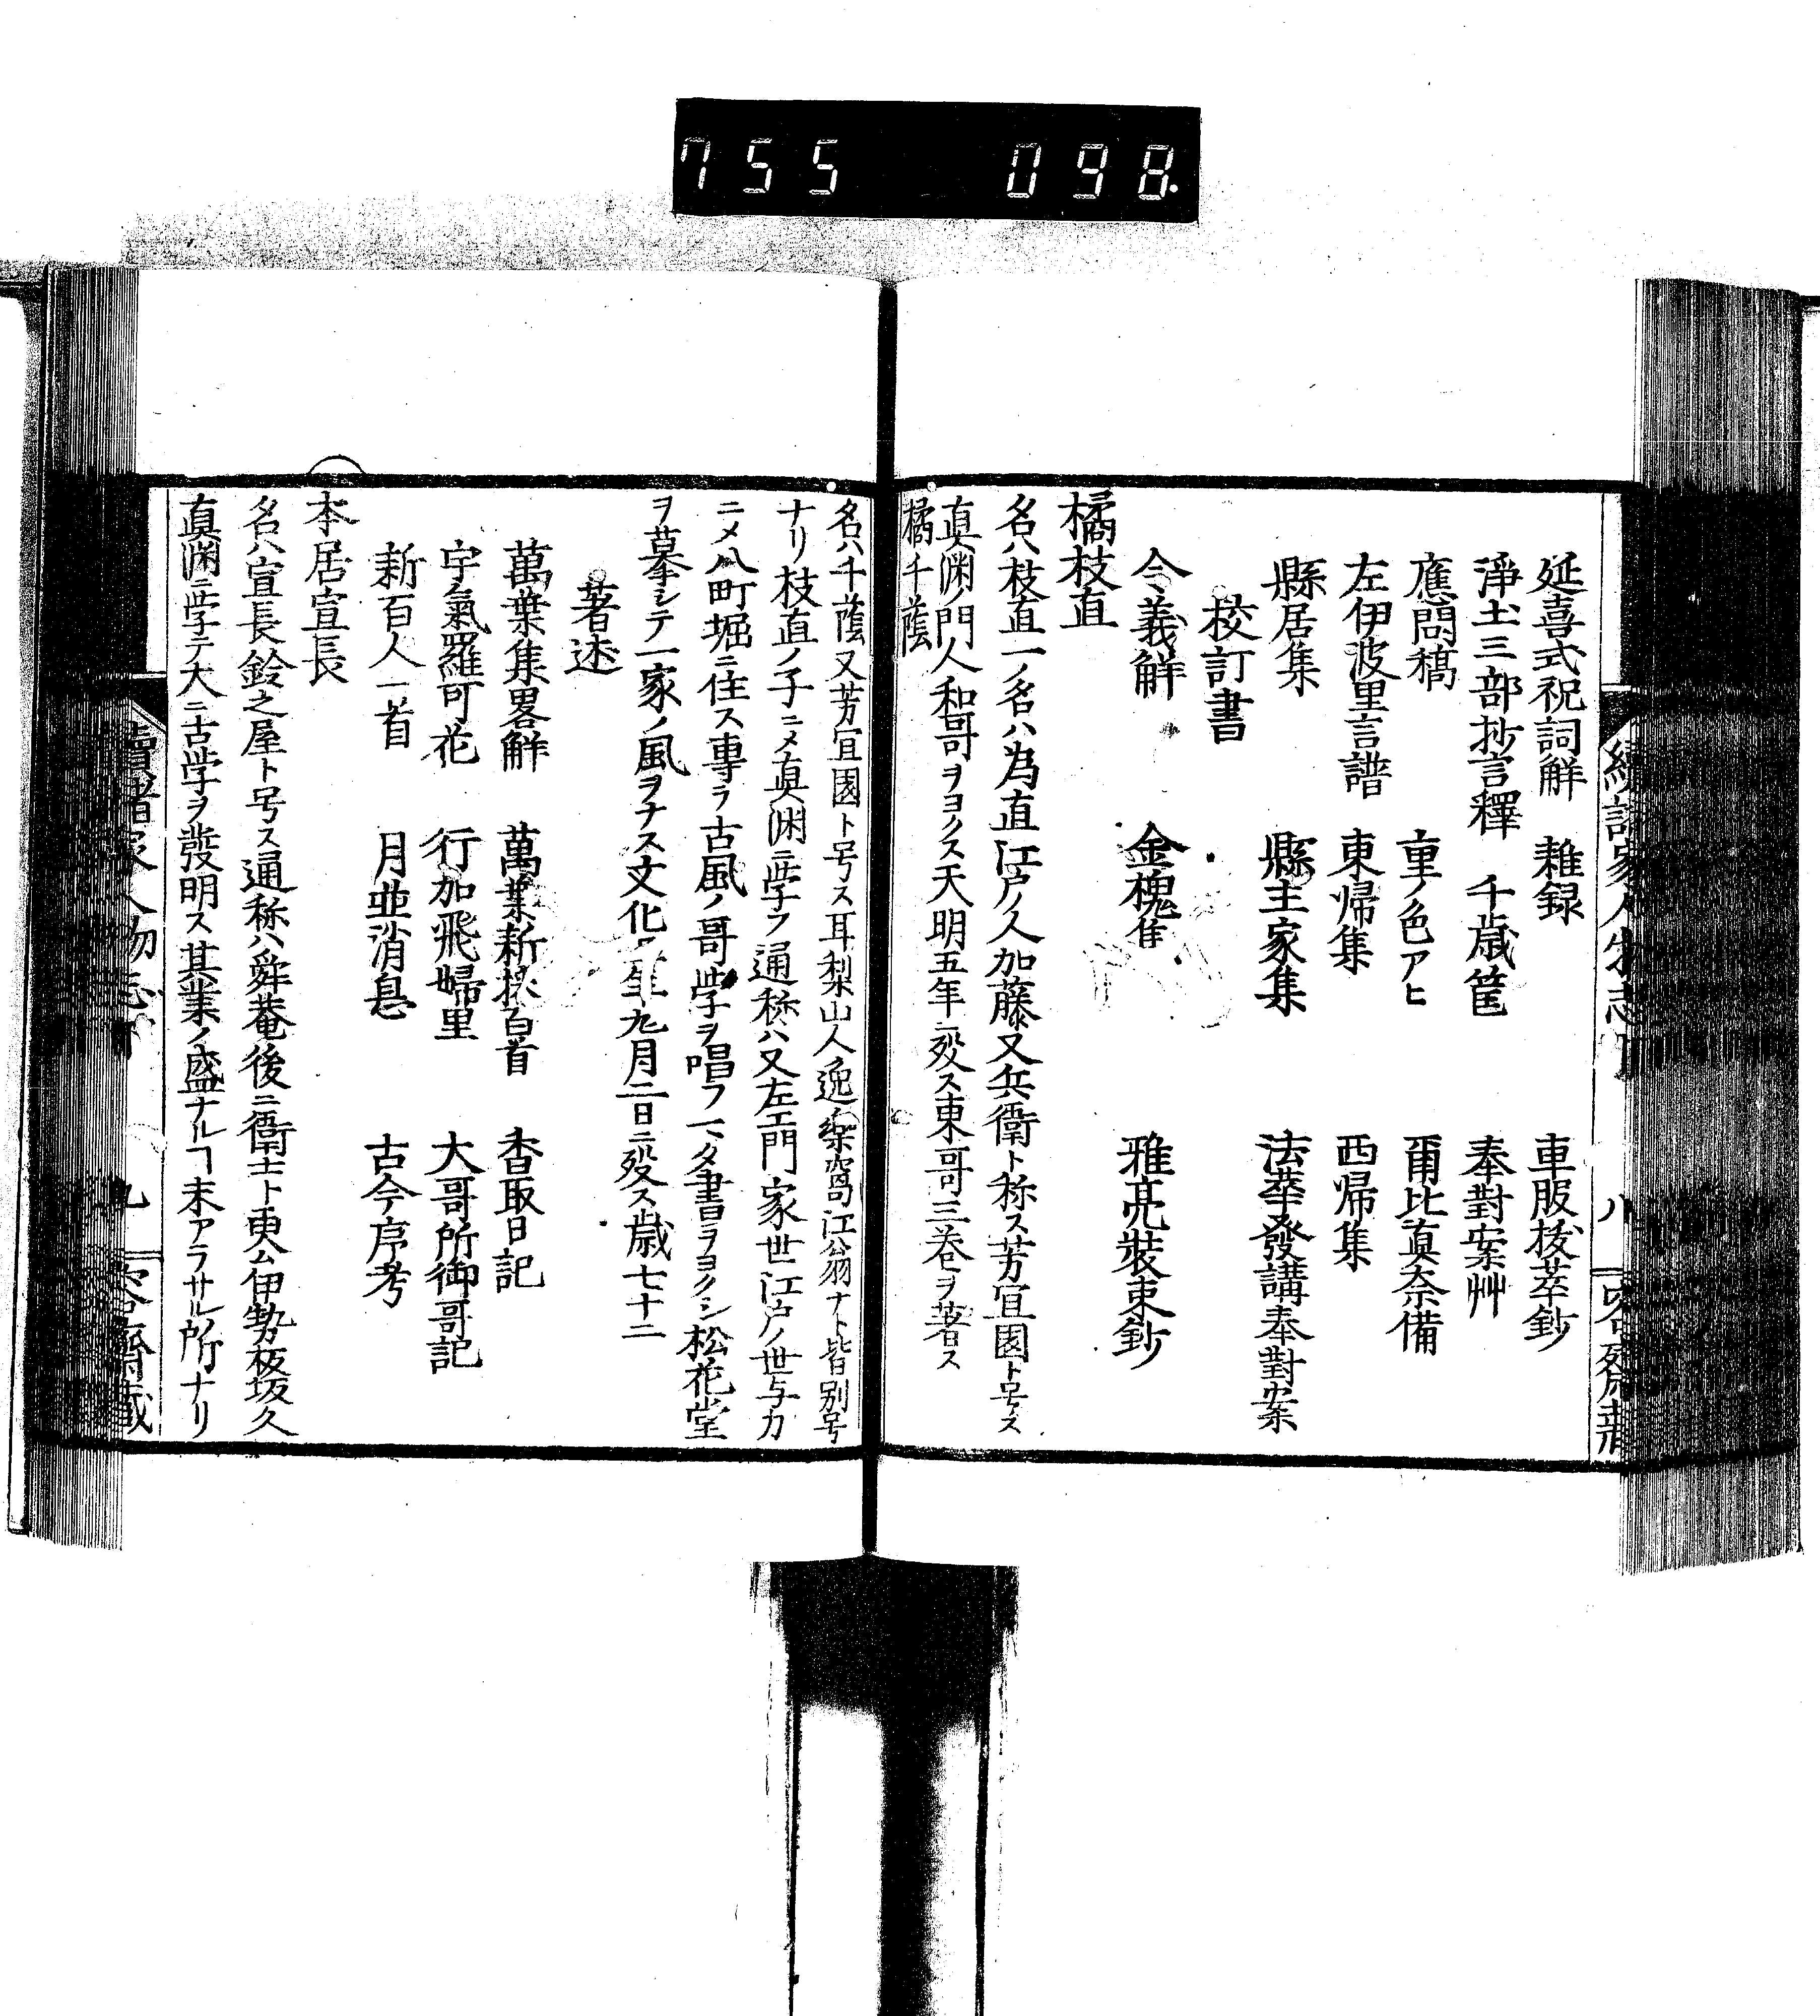 755 098
延喜式祝詞解 雜録 車服抜萃鈔
淨土三部抄言釋 千歳筐 奉對案艸
應問稿 童ノ色アヒ 爾比真奈備
左伊波里言譜 東帰集 西帰集
縣居集 縣主家集 法華發講奉對案
校訂書
令義觧 金槐集 雅亮装束鈔
橘枝直
名ハ枝直一ノ名ハ為直江戸ノ人加藤又兵衞ト称ス芳宜園ト号ス
真渕ノ門人和哥ヲヨクス天明五年ニ歿ス東哥三巻ヲ著ス
橘千蔭
名ハ千蔭又芳宜園ト号ス耳梨山人逸樂窩江翁ナト皆別号
ナリ枝直ノ子ニメ真渕ニ学フ通称ハ又左エ門家世江戸ノ世与力
ニメ八町堀ニ住ス専ラ古風ノ哥学ヲ唱フマタ書ヲヨクシ松花堂
ヲ摹シテ一家ノ風ヲナス文化 年九月二日ニ歿ス歳七十二
著述
萬葉集畧觧 萬葉新採百首 香取日記
宇氣羅可花 行加飛婦里 大哥所御哥記
新百人一首 月並消息 古今序考
本居宣長
名ハ宣長鈴之屋ト号ス通称ハ舜菴後ニ衞士ト更ム伊勢板坂久
真渕ニ学テ大ニ古学ヲ發明ス其業ノ盛ナルヿ未アラサル所ナリ
續諸家人物志下 九